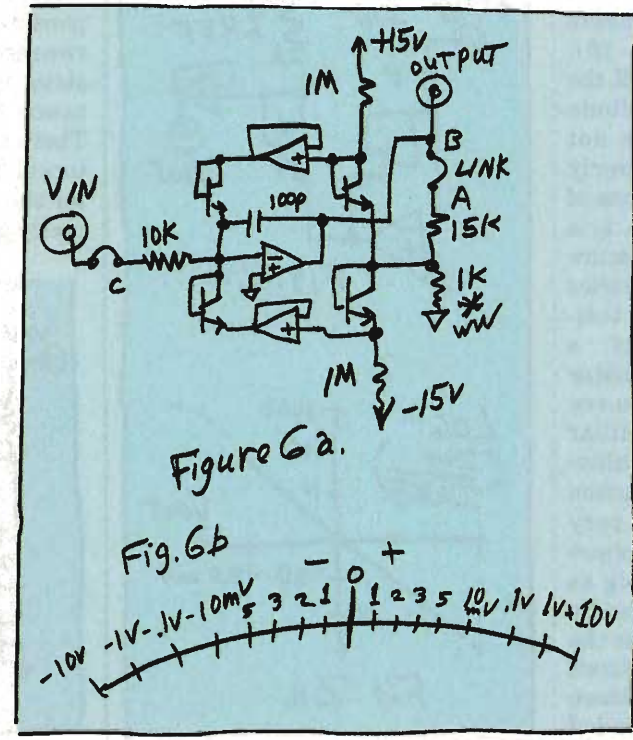 +15V
OUTPUT
1M
B
LINK
A
100p
VIN
10K
15K
C
1K
*
WW
1M
-15V
Figure 6a.
Fig. 6b
- 0 +
-10V -1V -.1V -10mV 5 3 2 1 1 2 3 5 10mV .1V 1V +10V